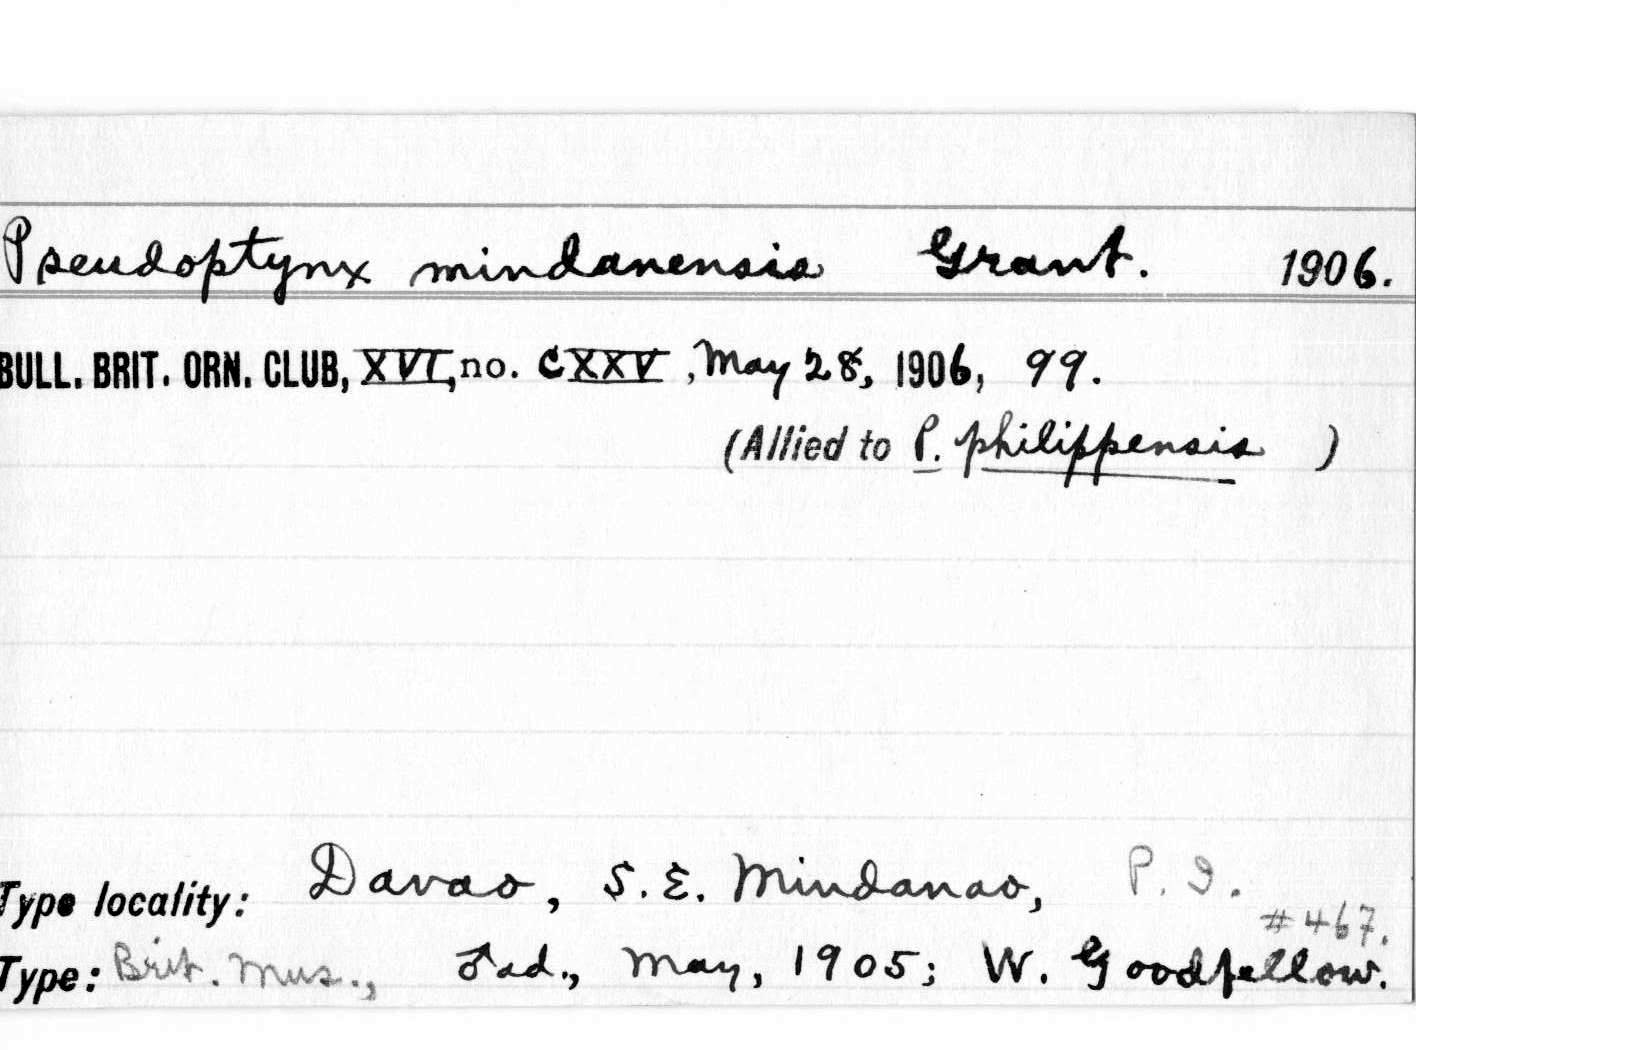 Pseudoptynx mindanensis Grant. 1906.
BULL. BRIT. ORN. CLUB, XVI, no. CXXV, May 28, 1906, 99.
(Allied to P. philippensis )
Type locality: Davao, S.E. Mindanao, P.I.
#467.
Type: Brit. Mus., ♂ ad., May, 1905; W. Goodfellow.